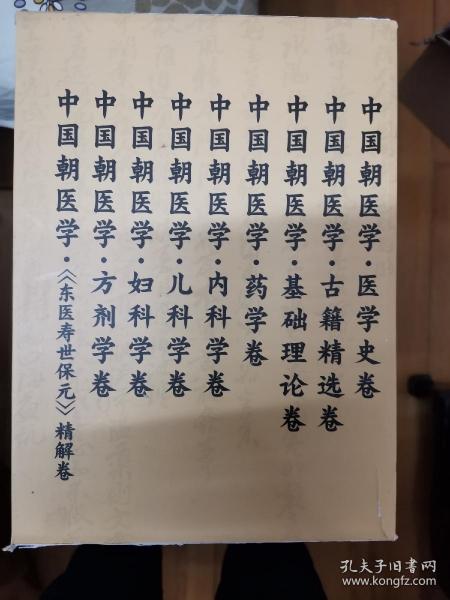 中国朝医学·医学史卷
中国朝医学·古籍精选卷
中国朝医学·基础理论卷
中国朝医学·药学卷
中国朝医学·内科学卷
中国朝医学·儿科学卷
中国朝医学·妇科学卷
中国朝医学·方剂学卷
中国朝医学·《东医寿世保元》精解卷
孔夫子旧书网
www.kongfz.com